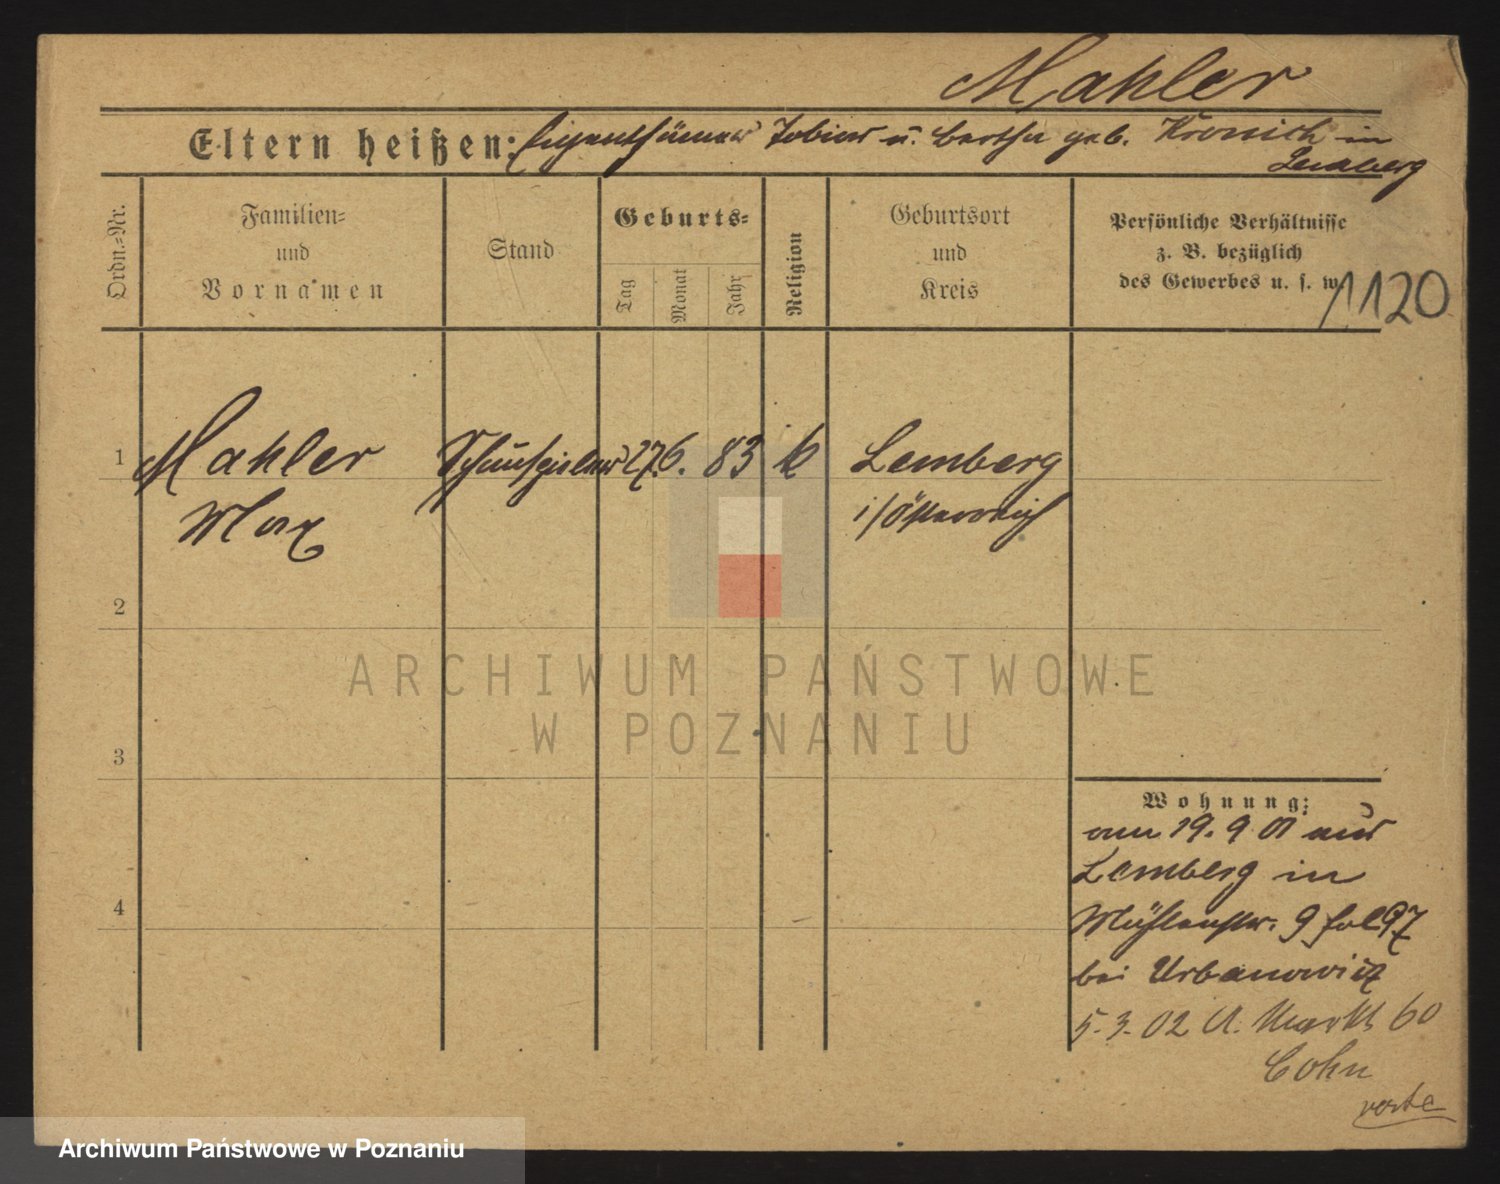 Mahler
Eltern heißen: Eigenthümer Tobias u. Bertha geb. Kronich in
Lemberg
Ordn.-Nr.
Familien-
und
Vornamen
Stand
Geburts-
Tag
Monat
Jahr
Religion
Geburtsort
und
Kreis
Persönliche Verhältnisse
z. B. bezüglich
des Gewerbes u. s. w.
1120
1 Mahler Schauspieler 27. 6. 83 k Lemberg
Max i/Österreich
2
3
4
ARCHIWUM PAŃSTWOWE
W POZNANIU
Wohnung:
am 19. 9 01 aus
Lemberg in
Mühlenstr. 9 fol 97
bei Urbanowicz
5. 3. 02 A. Markt 60
Cohn
Archiwum Państwowe w Poznaniu